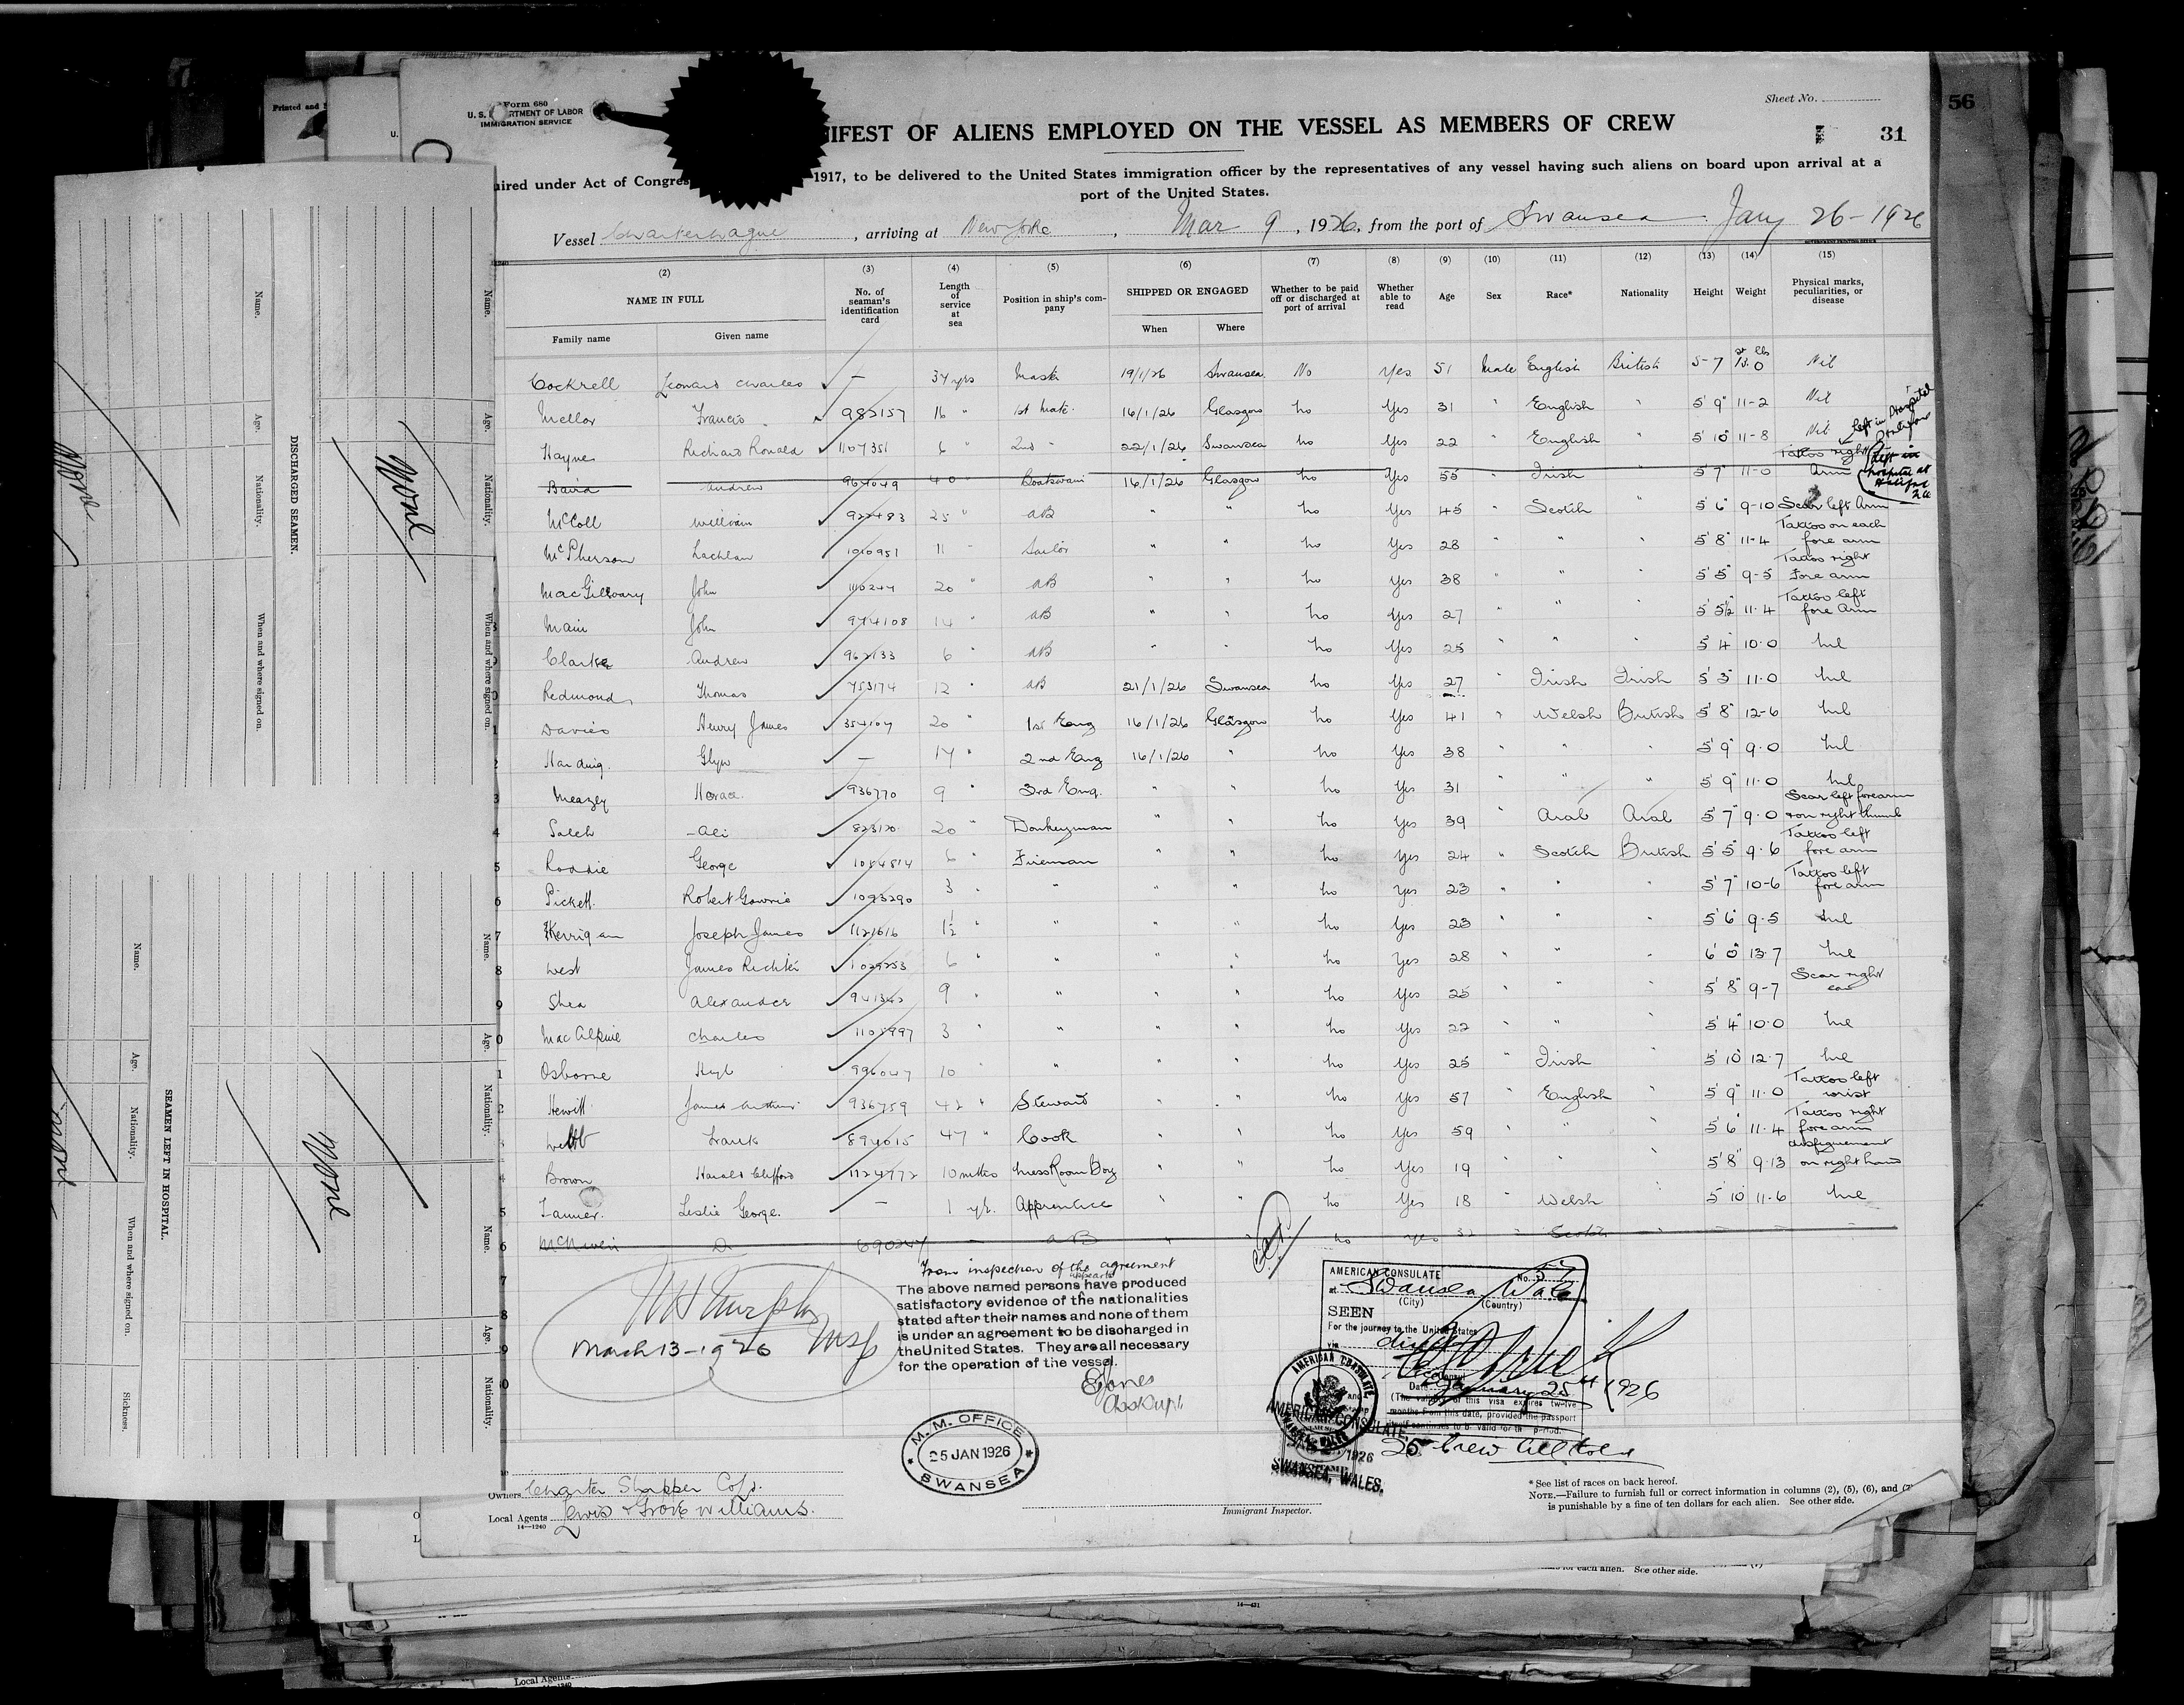 Printed and
Form 680
U. S. RTMENT OF LABOR
IMMIGRATION SERVICE
Sheet No.
56
31
IFEST OF ALIENS EMPLOYED ON THE VESSEL AS MEMBERS OF CREW
uired under Act of Congres 1917, to be delivered to the United States immigration officer by the representatives of any vessel having such aliens on board upon arrival at a
port of the United States.
Vessel , arriving at New York , Mar 9 , 1926, from the port of Swansea Jany 26-1926
(2) (3) (4) (5) (6) (7) (8) (9) (10) (11) (12) (13) (14) (15)
NAME IN FULL No. of seaman's identification card Length of service at sea Position in ship's company SHIPPED OR ENGAGED Whether to be paid off or discharged at port of arrival Whether able to read Age Sex Race* Nationality Height Weight Physical marks, peculiarities, or disease
Family name Given name When Where
st lbs
Cockrell Leonard Charles — 34 yrs Master 19/1/26 Swansea No Yes 51 Male English British 5-7 13.0 Nil
Mellor Francis 982157 16 " 1st Mate 16/1/26 Glasgow No Yes 31 " English " 5' 9" 11-2 Nil
Hayne Richard Ronald 1107351 6 " 2nd " 22/1/26 Swansea No Yes 22 " English " 5' 10" 11-8 Nil
left in Hospital
Baird Andrew 964049 40 " Boatswain 16/1/26 Glasgow No Yes 55 " Irish " 5' 7" 11-0 Tattoo right Arm
left in hospital at Halifax
McColl William 922483 25 " AB " " No Yes 45 " Scotch " 5' 6" 9-10 Scar left Arm
McPherson Lachlan 1010951 11 " Sailor " " No Yes 28 " " " 5' 8" 11-4 Tattoo on each fore arm
MacGilvary John 1110244 20 " AB " " No Yes 38 " " " 5' 5" 9-5 Tattoo right Fore arm
Main John 974108 14 " AB " " No Yes 27 " " " 5' 5½ 11.4 Tattoo left fore Arm
Clarke Andrew 962133 6 " AB " " No Yes 25 " " " 5' 4" 10.0 Nil
Redmond Thomas 753174 12 " AB 21/1/26 Swansea No Yes 27 " Irish Irish 5' 3" 11.0 Nil
Davies Henry James 354104 20 " 1st Eng 16/1/26 Glasgow No Yes 41 " Welsh British 5' 8" 12-6 Nil
Harding Glyn — 17 " 2nd Eng 16/1/26 " No Yes 38 " " " 5' 9" 9.0 Nil
Meazey Horace 936770 9 " 3rd Eng. " " No Yes 31 " " " 5' 9" 11.0 Nil
Saleh Ali 823120 20 " Donkeyman " " No Yes 39 " Arab Arab 5' 7" 9.0 Scar left forearm + on right thumb
Roddie George 1084814 6 " Fireman " " No Yes 24 " Scotch British 5' 5" 9.6 Tattoo left fore arm
Pickett Robert Gowrie 1093290 3 " " " " No Yes 23 " " " 5' 7" 10-6 Tattoo left fore arm
Kerrigan Joseph James 1121616 1½ " " " " No Yes 23 " " " 5' 6" 9.5 Nil
West James Richter 1029253 6 " " " " No Yes 28 " " " 6' 0" 13.7 Nil
Shea Alexander 941342 9 " " " " No Yes 25 " " " 5' 8" 9-7 Scar right ear
MacAlpine Charles 1108997 3 " " " " No Yes 22 " " " 5' 4" 10.0 Nil
Osborne Hugh 996047 10 " " " " No Yes 25 " Irish " 5' 10" 12.7 Nil
Hewitt James Arthur 936759 42 " Steward " " No Yes 57 " English " 5' 9" 11.0 Tattoo left wrist
Webb Frank 894015 47 " Cook " " No Yes 59 " " " 5' 6" 11.4 Tattoo right fore arm
Brown Harold Clifford 1124972 10 mths Mess Room Boy " " No Yes 19 " " " 5' 8" 9.13 disfigurement on right hand
Tanner Leslie George — 1 yr. Apprentice " " No Yes 18 " Welsh " 5' 10" 11-6 Nil
D 690247 — AB " " No Yes 32 " Scotch " — — —
From inspection of the agreement
appears
The above named persons have produced
satisfactory evidence of the nationalities
stated after their names and none of them
is under an agreement to be discharged in
the United States. They are all necessary
for the operation of the vessel.
EJones
March 13-1926
M. M. OFFICE
25 JAN 1926
SWANSEA
AMERICAN CONSULATE No.
at Swansea Wales
(City) (Country)
SEEN
For the journey to the United States
via direct
Date January 25th 1926
(The validity of this visa expires twelve
months from this date, provided the passport
itself continues to be valid for that period.
AMERICAN CONSULATE
AMERICAN CONSULATE,
SWANSEA, WALES.
25 Crew All told
Owners Charter Shipping Co Ld.
Local Agents Lewis & Grove Williams.
14—1240
Immigrant Inspector.
*See list of races on back hereof.
NOTE.—Failure to furnish full or correct information in columns (2), (5), (6), and (7)
is punishable by a fine of ten dollars for each alien. See other side.
for each alien. See other side.
14—431
Local Agents
DISCHARGED SEAMEN.
Name. Age. Nationality. When and where signed on.
Name. Age. Nationality. When and where signed on.
None
None
SEAMEN LEFT IN HOSPITAL.
Name. Age. Nationality. When and where signed on. Sickness.
Name. Age. Nationality. Name. Age. Nationality.
None
None